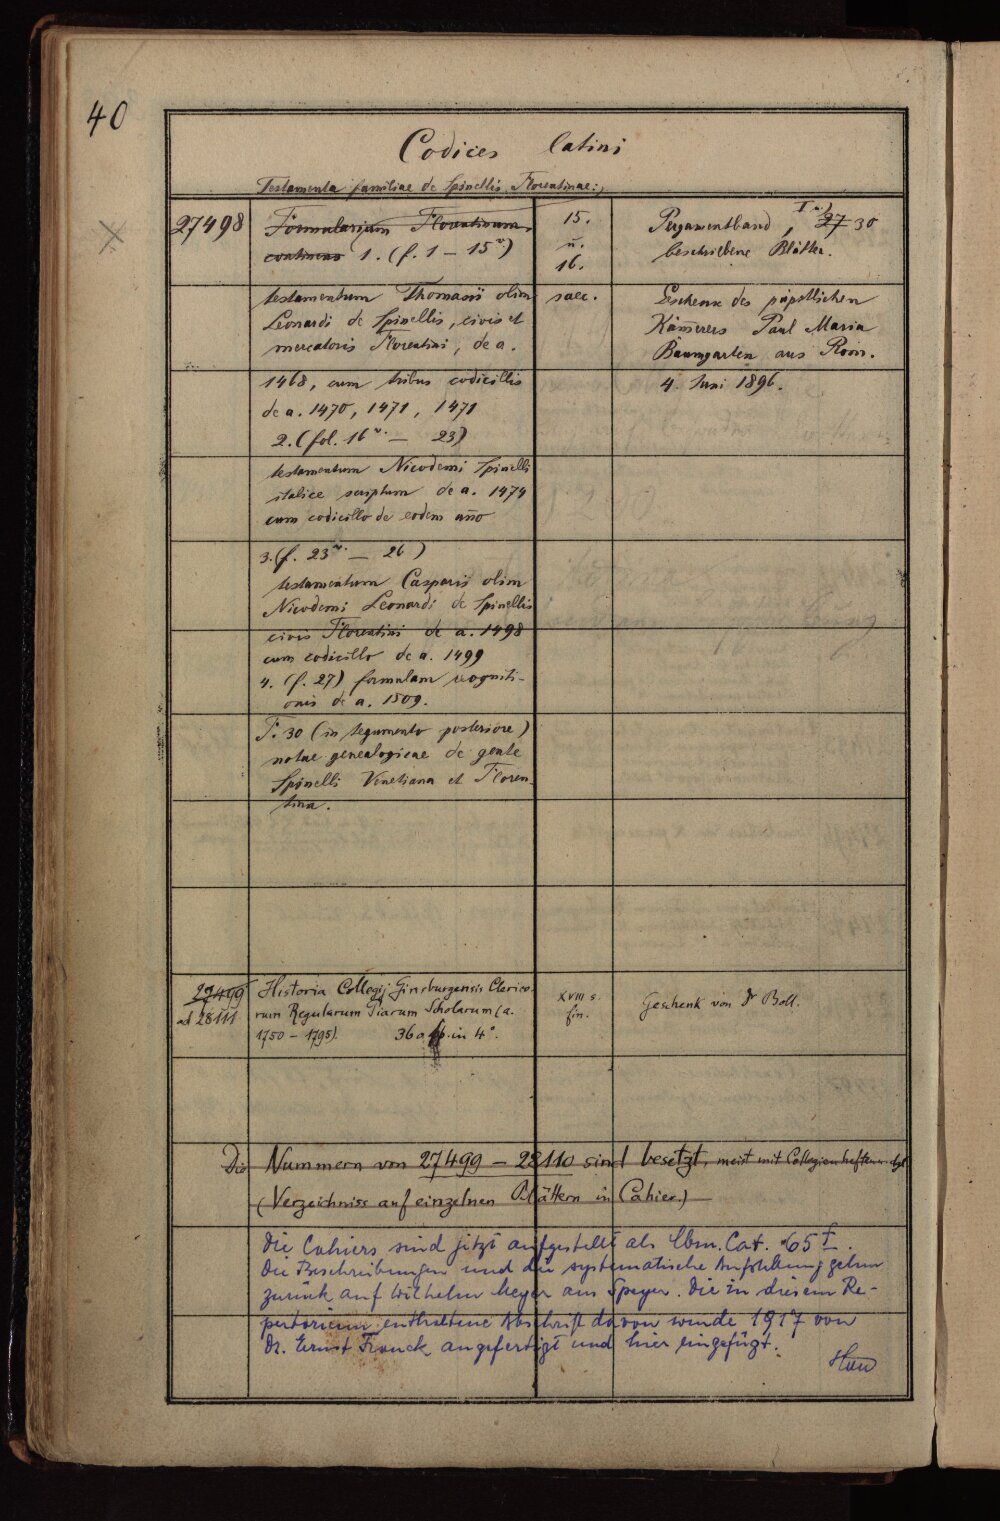 40
Codices latini
Testamenta familiae de Spinellis Florentinae:
27498
Formularium Florentinum
continens 1. (f. 1 – 15v)
testamentum Thomasii olim
Leonardi de Spinellis, civis et
mercatoris Florentini, de a.
1468, cum tribus codicillis
de a. 1470, 1471, 1471
2. (fol. 16v. – 23)
testamentum Nicodemi Spinelli
italice scriptum de a. 1474
cum codicillo de eodem anno
3. (f. 23v. – 26)
testamentum Casparis olim
Nicodemi Leonardi de Spinellis
civis Florentini de a. 1498
cum codicillo de a. 1499
4. (f. 27) formulam recogniti-
onis de a. 1509.
F. 30 (in tegumento posteriore)
notae genealogicae de gente
Spinelli Venetiana et Floren-
tina.
15.
u.
16.
saec.
Pergamentband, I u. 27 30
beschriebene Blätter.
Geschenk des päpstlichen
Kämerers Paul Maria
Baumgarten aus Rom.
4. Juni 1896.
27499
ad 28111
Historia Collegij Ginsburgensis Clerico-
rum Regularum Piarum Scholarum (a.
1750 – 1795). 360 in 4°.
XVIII s.
fin.
Geschenk von Dr Boll.
Die Nummern von 27499 – 28110 sind besetzt, meist mit Collegienheften
(Verzeichniss auf einzelnen Blättern in Cahier.)
Die Cahiers sind jetzt aufgestellt als Cbm. Cat. 65 f.
Die Beschreibungen und die systematische Aufstellung gehen
zurück auf Wilhelm Meyer aus Speyer. Die in diesem Re-
pertorium enthaltene Abschrift davon wurde 1917 von
Dr. Ernst Franck angefertigt und hier eingefügt.